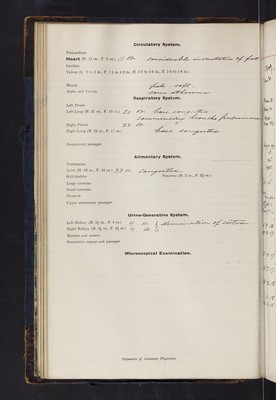 Circulatory System.
Pericardium
Heart (M. 11 oz., F. 9 oz.) 11 oz considerable incrustation of fat
Cavities
Valves
Muscle pale soft.
Aorta and Vessels some atheroma
Respiratory System.
Left Pleura
Left Lung 20 oz base congested
commencing broncho pneumonia
Right Pleura
Right Lung base congested
Respiratory passages
Alimentary System.
Peritoneum
Liver congested
Gall-bladder
Large intestine
Small intestine
Stomach
Upper alimentary passages
Urino-Generative System.
Left Kidney diminution of cortex
Right Kidney
Bladder and ureters
Generative organs and passages
Microscopical Examination.
Signature of Assistant Physician